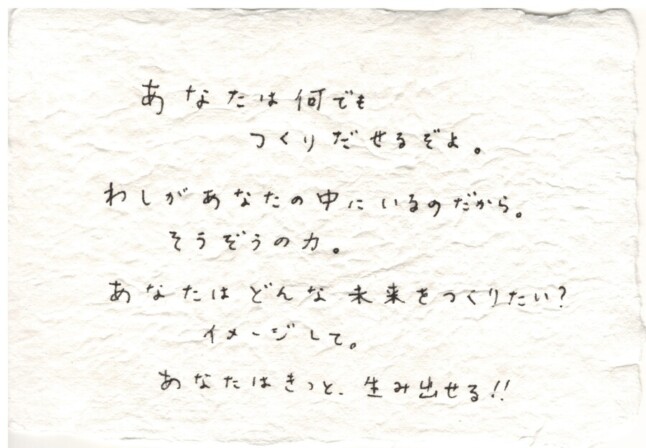 あなたは何でも
つくりだせるぞよ。
わしがあなたの中にいるのだから。
そうぞうの力。
あなたはどんな未来をつくりたい?
イメージして。
あなたはきっと、生み出せる!!